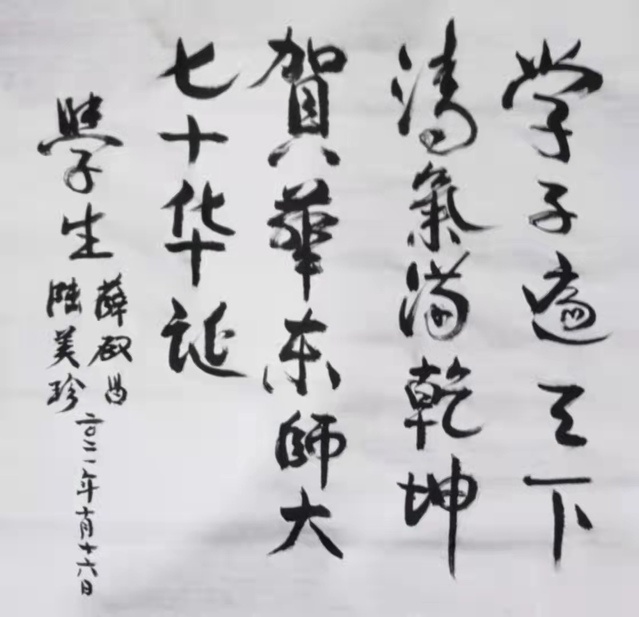 学子遍天下
清氣满乾坤
賀華东師大
七十华誕
學生
薛啟昌
陆美珍
二〇二一年十月十六日